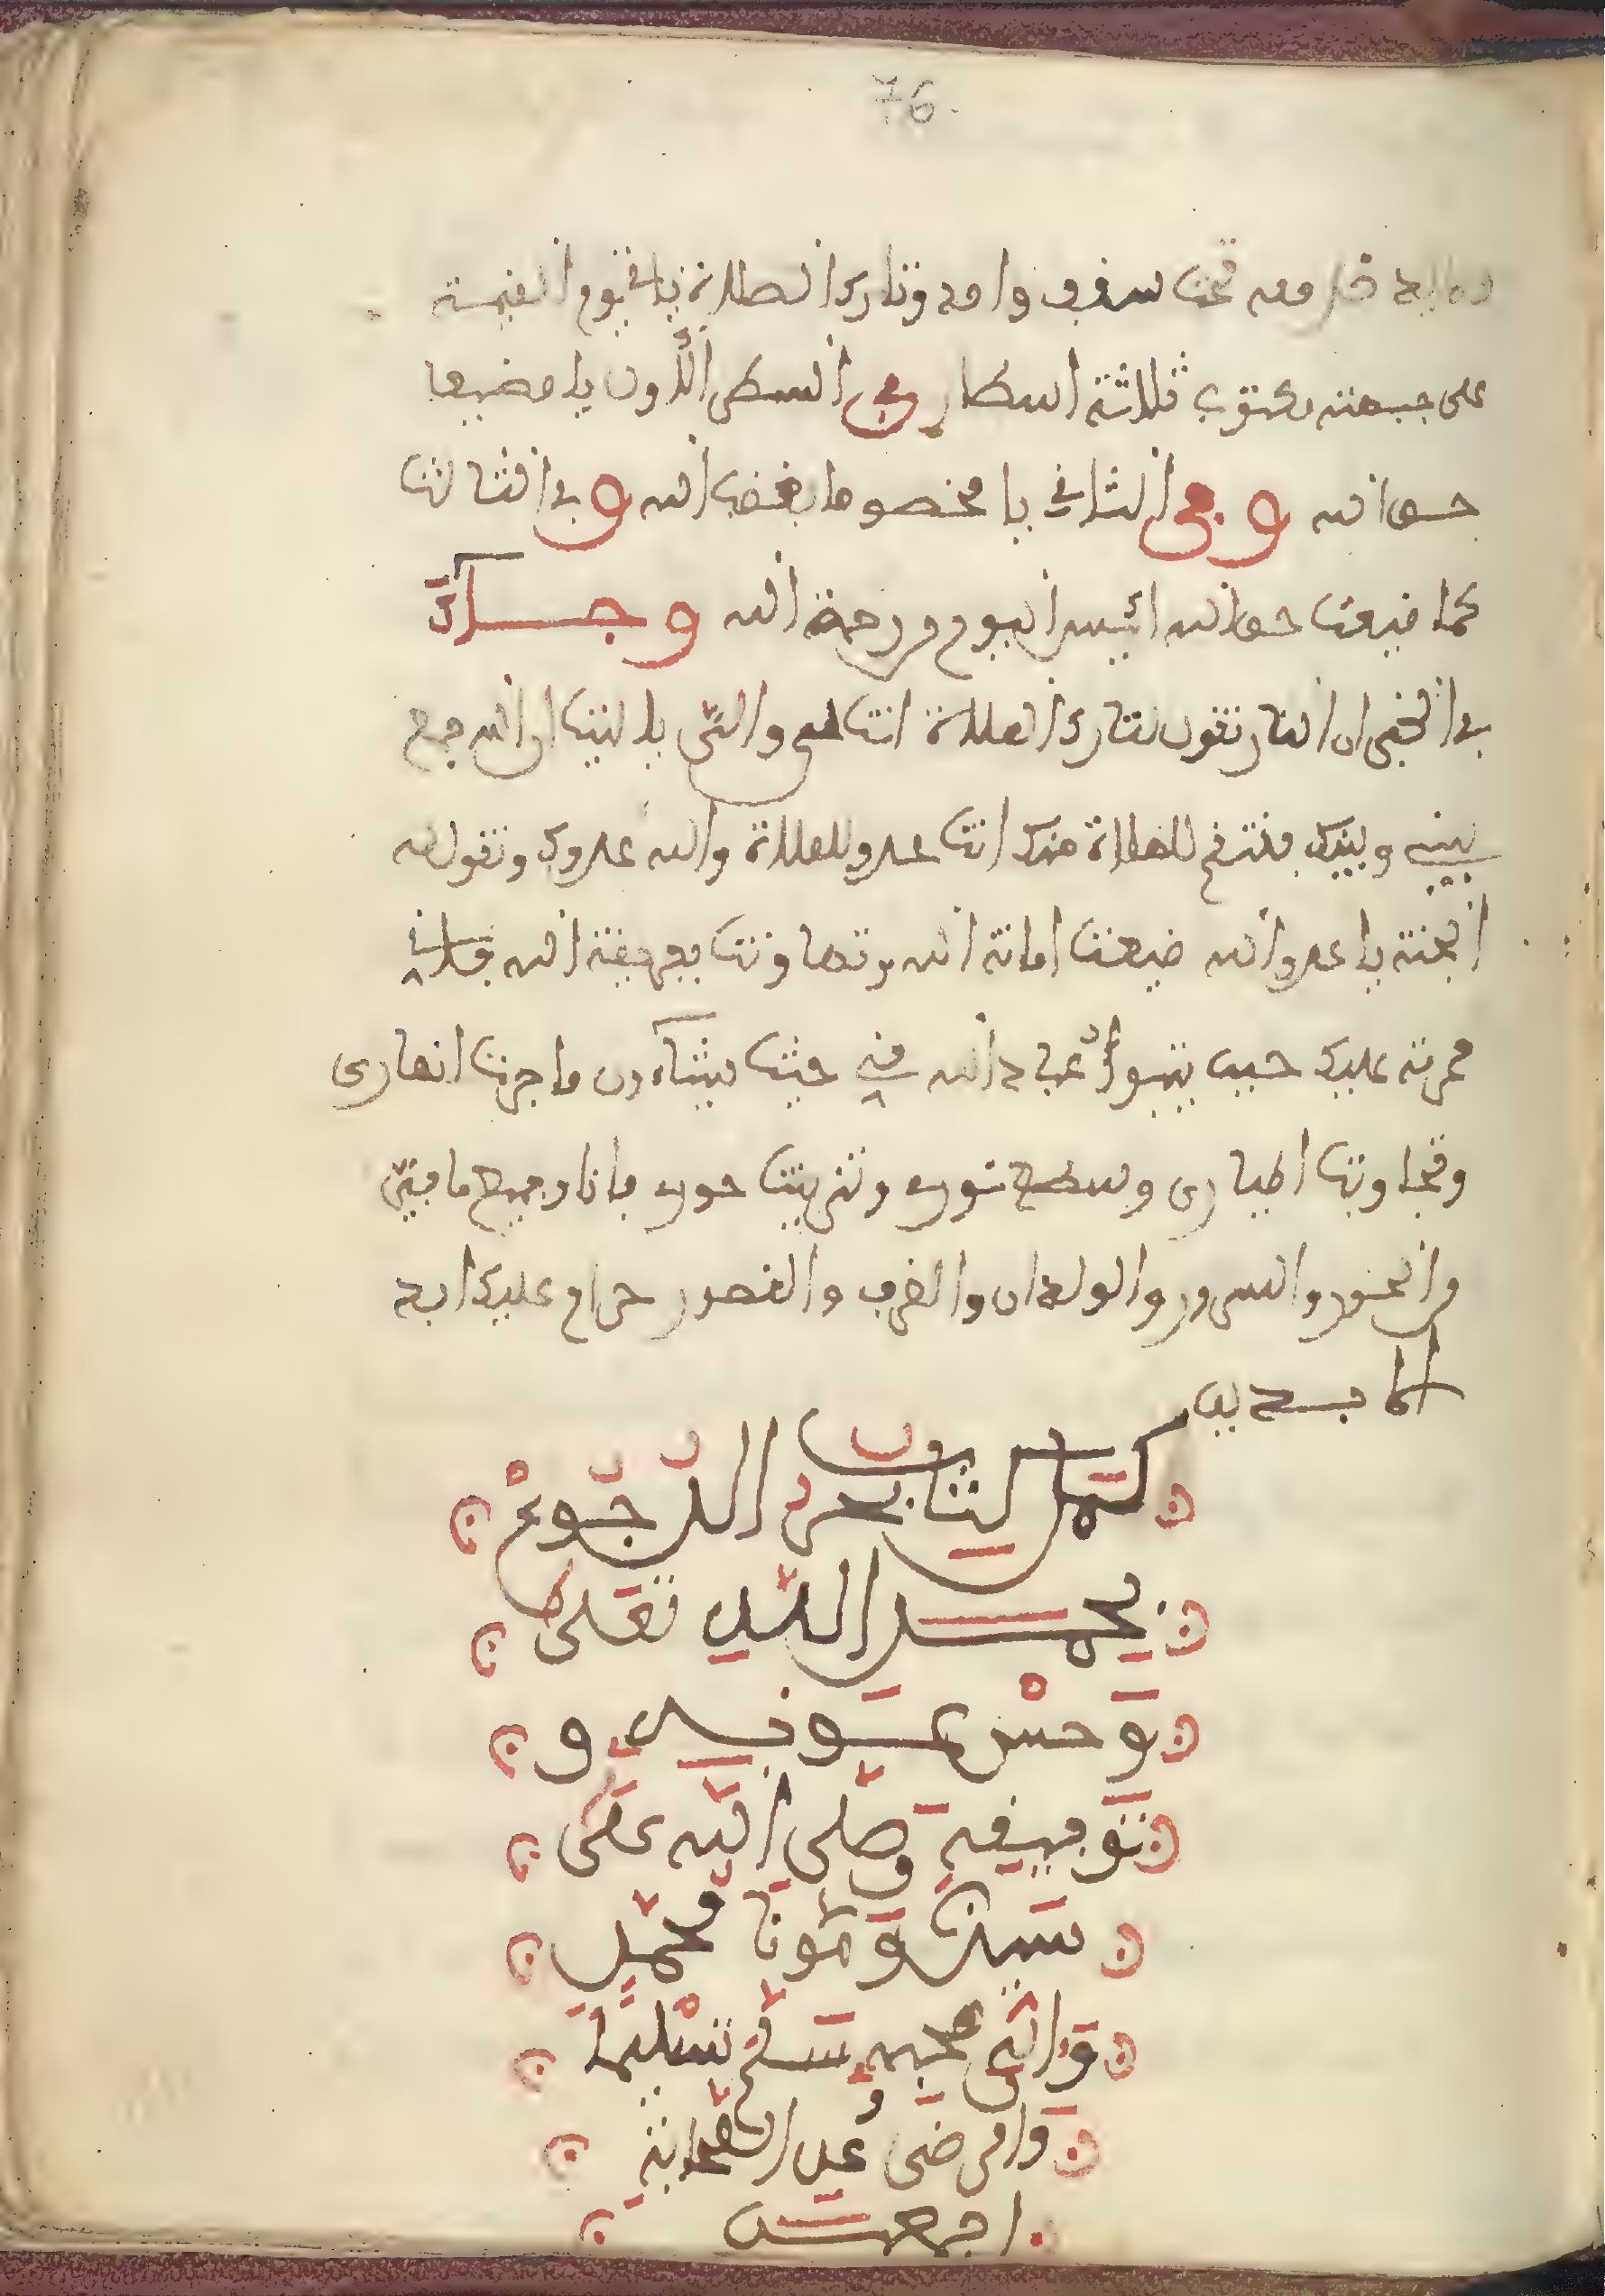 76
معه تحت سقف واحد وتارك الصلاة ياتي يوم القيمة
على جبهته مكتوب ثلاثة اسطار في السطر الاول يا مضيعا
حق الله وفي الثاني يا مخصوما بغضب الله وفي الثالث
كما ضيعت حق الله ائيس اليوم من رحمة الله وجاء
في الخبر ان النار تقول لتارك الصلاة انت الذي يا ليت ان الله جمع
بيني وبينك فننتقم للصلاة منك انت عدو للصلاة والله عدوك وتقول له
الجنة يا عدو الله ضيعت امانة الله وتهاونت بفريضة الله فانا
محرمة عليك حيت يتبوا عباد الله مني حيث يشاءون ما جرت انهاري
وتجاوبت اطياري وسطع نوري وتزينت حوري فانا وجميع ما في
من الحور والسرور والولدان والغرف والقصور حرام عليك ابد
الابدين
كمل كتاب بحر الدموع
بحمد الله تعلى
وحسن عونه و
توفيقه وصلى الله على
سيدنا ومولنا محمد
واله وصحبه وسلم تسليما
وارضى عن الصحابة
اجمعين